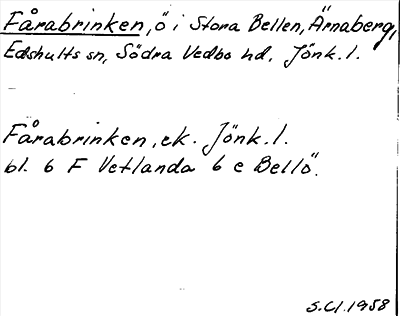 Fårabrinken, ö i Stora Bellen, Ärnaberg,
Edshults sn, Södra Vedbo hd, Jönk. l.
Fårabrinken, ek. Jönk. l.
bl. 6 F Vetlanda 6 e Bellö.
S.Cl. 1958